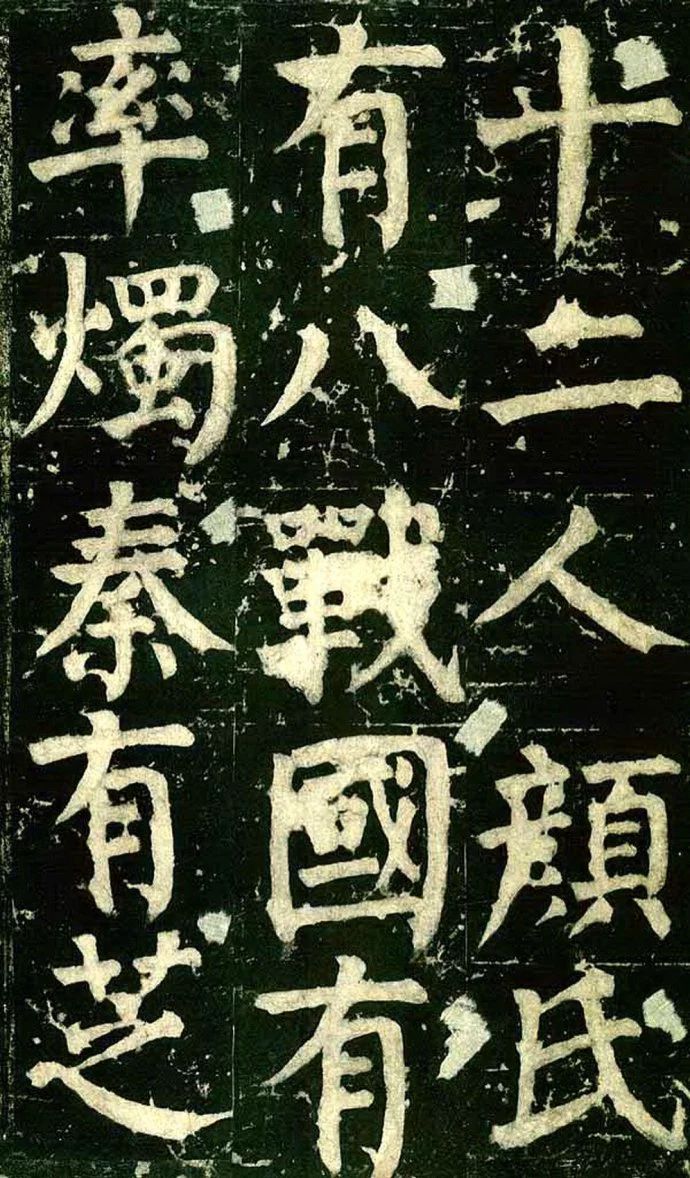 十二人顏氏
有八戰國有
率燭秦有芝